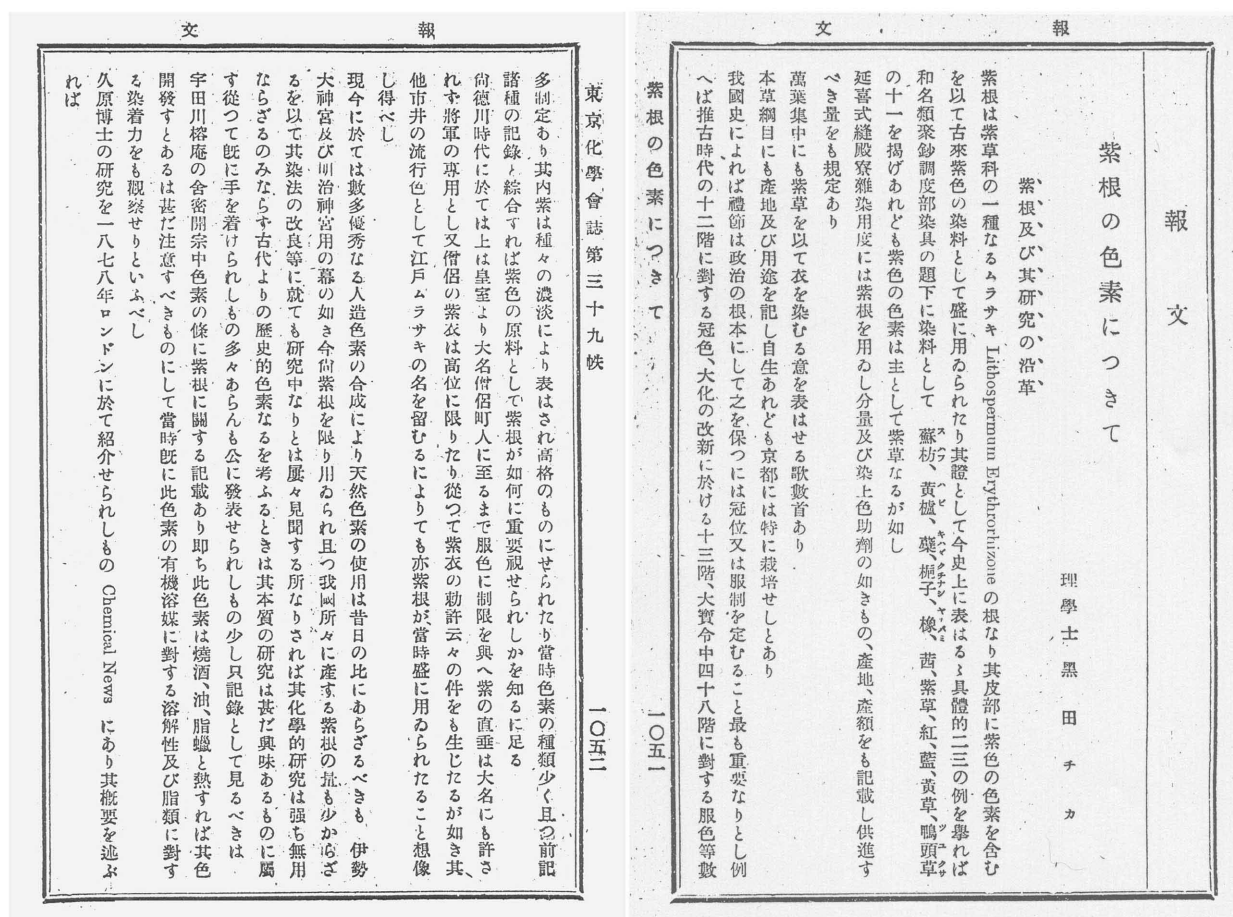 報文
報文
紫根の色素につきて
理學士 黑田チカ
紫根及び其研究の沿革
紫根は紫草科の一種なるムラサキ Lithospermum Erythrorhizone の根なり其皮部に紫色の色素を含む
を以て古來紫色の染料として盛に用ゐられたり其證として今史上に表はるゝ具體的二三の例を擧れば
和名類聚鈔調度部染具の題下に染料として 蘇枋、黃櫨、蘗、梔子、橡、茜、紫草、紅、藍、黃草、鴨頭草
の十一を揭げあれども紫色の色素は主として紫草なるが如し
延喜式縫殿寮雜染用度には紫根を用ゐし分量及び染上色助劑の如きもの、產地、產額をも記載し供進す
べき量をも規定あり
萬葉集中にも紫草を以て衣を染むる意を表はせる歌數首あり
本草綱目にも產地及び用途を記し自生あれども京都には特に栽培せしとあり
我國史によれば禮節は政治の根本にして之を保つには冠位又は服制を定むること最も重要なりとし例
へば推古時代の十二階に對する冠色、大化の改新に於ける十三階、大寶令中四十八階に對する服色等數
紫根の色素につきて
一〇五一
報文
東京化學會誌第三十九帙
一〇五二
多制定あり其内紫は種々の濃淡により表はされ高格のものにせられたり當時色素の種類少く且つ前記
諸種の記錄と綜合すれば紫色の原料として紫根が如何に重要視せられしかを知るに足る
尙德川時代に於ては上は皇室より大名僧侶町人に至るまで服色に制限を與へ紫の直垂は大名にも許さ
れず將軍の專用とし又僧侶の紫衣は高位に限りたり從つて紫衣の勅許云々の件をも生じたるが如き其
他市井の流行色として江戶ムラサキの名を留むるによりても亦紫根が當時盛に用ゐられたること想像
し得べし
現今に於ては數多優秀なる人造色素の合成により天然色素の使用は昔日の比にあらざるべきも 伊勢
大神宮及び明治神宮用の幕の如き今尙紫根を限り用ゐられ且つ我國所々に產する紫根の量も少からざ
るを以て其染法の改良等に就ても研究中なりとは屢々見聞する所なりされば其化學的研究は强ち無用
ならざるのみならず古代よりの歷史的色素なるを考ふるときは其本質の研究は甚だ興味あるものに屬
す從つて旣に手を着けられしもの多々あらんも公に發表せられしもの少し只記錄として見るべきは
宇田川榕庵の舍密開宗中色素の條に紫根に關する記載あり卽ち此色素は燒酒、油、脂蠟と熱すれば其色
開發すとあるは甚だ注意すべきものにして當時旣に此色素の有機溶媒に對する溶解性及び脂類に對す
る染着力をも觀察せりといふべし
久原博士の研究を一八七八年ロンドンに於て紹介せられしもの Chemical News にあり其槪要を述ぶ
れば